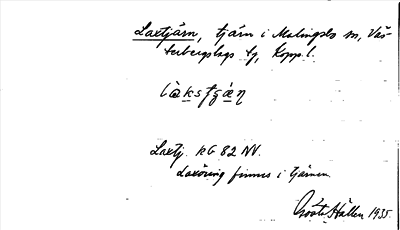 Laxtjärn, tjärn i Malingsbo sn, Väs-
terbergslags tg, Kopp. l.
Laxtj. kG 82 NV.
Laxöring finnes i tjärnen.
Gösta Hallen 1935.